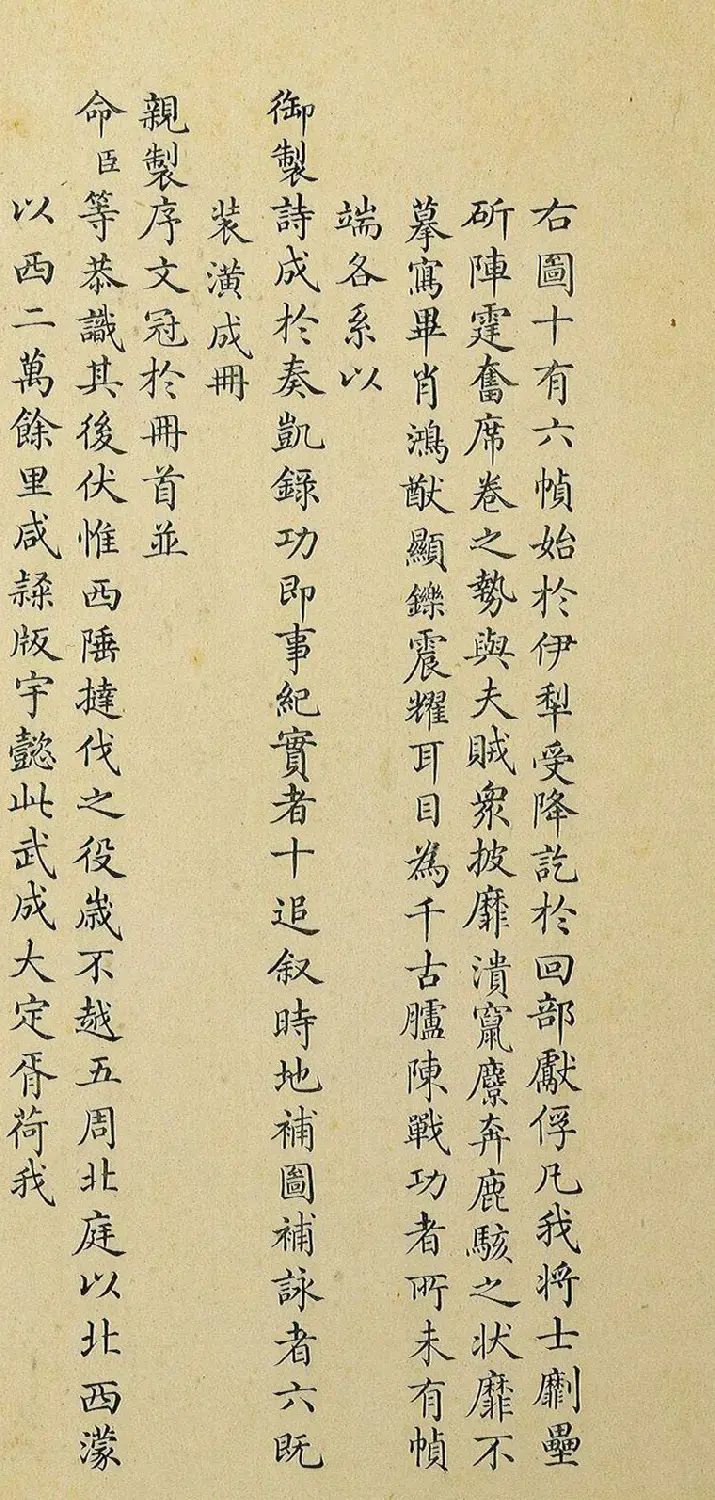 右圖十有六幀始於伊犁受降訖於回部獻俘凡我將士劘壘
斫陣霆奮席卷之勢與夫賊衆披靡潰竄麕奔鹿駭之狀靡不
摹寫畢肖鴻猷顯鑠震耀耳目為千古臚陳戰功者所未有幀
端各系以
御製詩成於奏凱錄功即事紀實者十追叙時地補圖補詠者六既
装潢成冊
親製序文冠於冊首並
命臣等恭識其後伏惟西陲撻伐之役歲不越五周北庭以北西濛
以西二萬餘里咸隸版宇懿此武成大定胥荷我